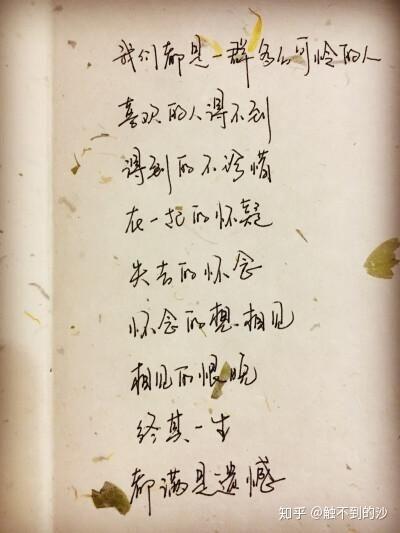 我们都是一群多么可怜的人
喜欢的人得不到
得到的不珍惜
在一起的怀疑
失去的怀念
怀念的想相见
相见的恨晚
终其一生
都满是遗憾
知乎 @触不到的沙